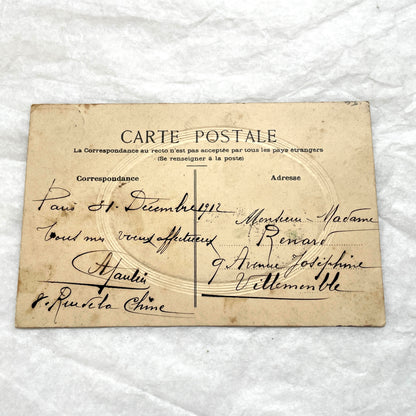 CARTE POSTALE
La Correspondance au recto n'est pas acceptée par tous les pays étrangers
(Se renseigner à la poste)
Correspondance
Paris 31 Décembre 1912
Tous mes voeux affectueux
8. Rue de la Chine
Adresse
Monsieur - Madame
Renard
9 Avenue Joséphine
Villemomble